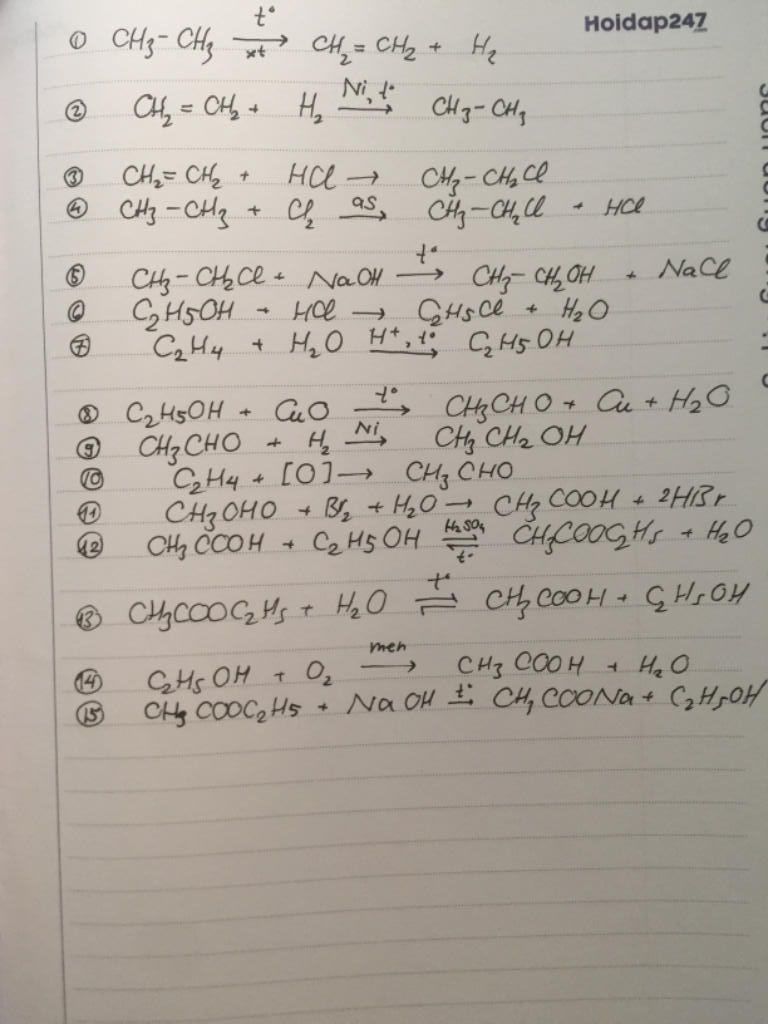 Hoidap247
① CH3-CH3 t°/xt → CH2=CH2 + H2
② CH2=CH2 + H2 Ni, t° → CH3-CH3
③ CH2=CH2 + HCl → CH3-CH2Cl
④ CH3-CH3 + Cl2 as → CH3-CH2Cl + HCl
⑤ CH3-CH2Cl + NaOH t° → CH3-CH2OH + NaCl
⑥ C2H5OH + HCl → C2H5Cl + H2O
⑦ C2H4 + H2O H+, t° → C2H5OH
⑧ C2H5OH + CuO t° → CH3CHO + Cu + H2O
⑨ CH3CHO + H2 Ni → CH3CH2OH
⑩ C2H4 + [O] → CH3CHO
⑪ CH3CHO + Br2 + H2O → CH3COOH + 2HBr
⑫ CH3COOH + C2H5OH H2SO4 ⇌ t° CH3COOC2H5 + H2O
⑬ CH3COOC2H5 + H2O t° ⇌ CH3COOH + C2H5OH
⑭ C2H5OH + O2 men → CH3COOH + H2O
⑮ CH3COOC2H5 + NaOH t° → CH3COONa + C2H5OH